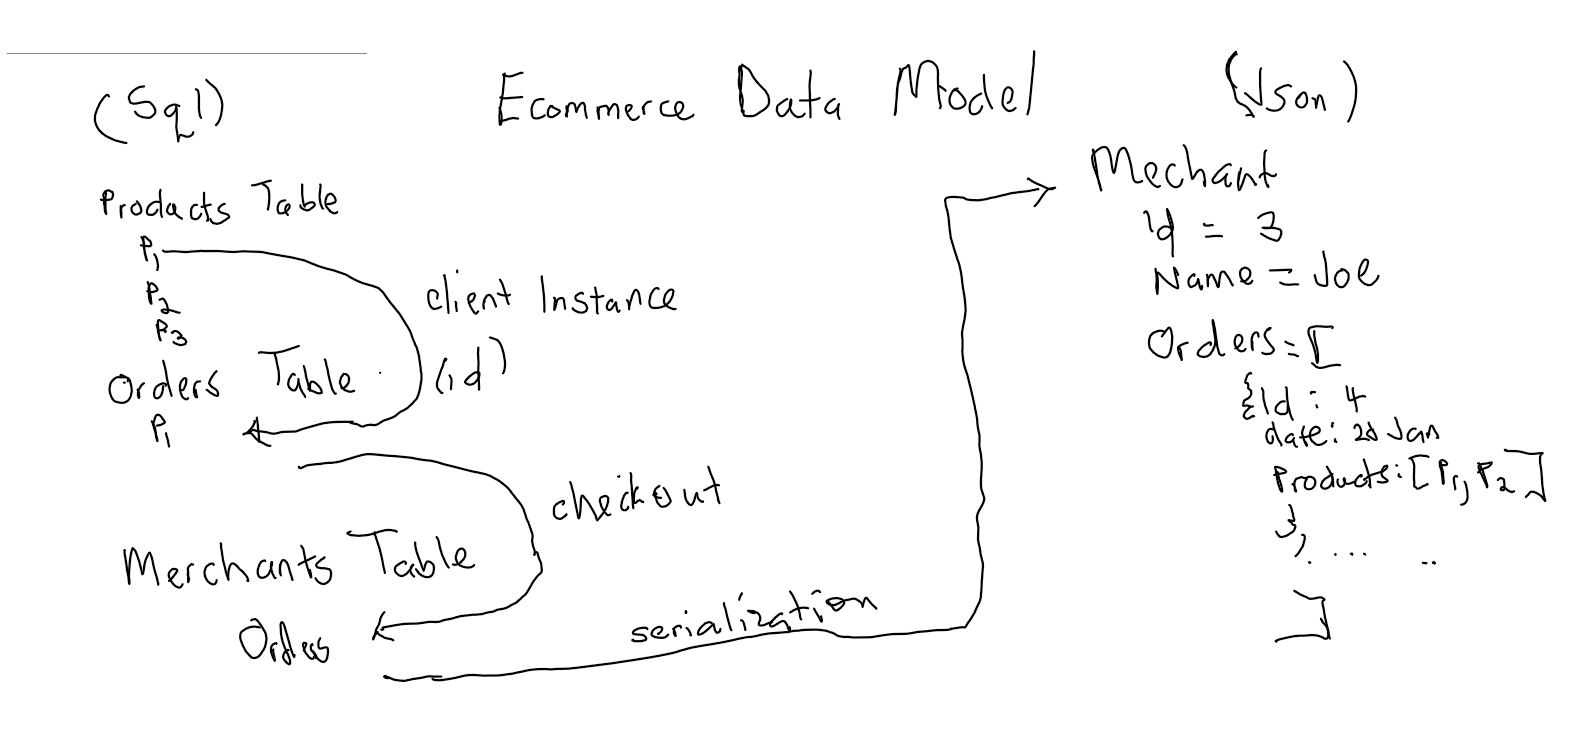 (Sql)
Ecommerce Data Model
(Json)
Products Table
P1
P2
P3
client Instance
(id)
Orders Table
P1
checkout
Merchants Table
Orders
serialization
Mechant
Id = 3
Name = Joe
Orders = [
{Id : 4
date: 2d Jan
Products: [P1, P2]
}, ... ..
]